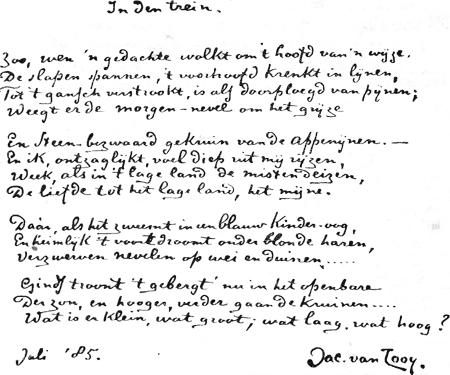 In den trein.
Zoo, wen 'n gedachte wolkt om 't hoofd van 'n wijze.
De slapen spannen, 't voorhoofd krenkt in lijnen,
Tot 't gansch verstrookt, is als doorploegd van pijnen;
Weegt er de morgen-nevel om het grijze
En steen-bezwaard gekruin van de Appenijnen. —
En ik, ontzaglijkt, voel diep uit mij rijzen,
Week, als in 't lage land de misten deizen,
De liefde tot het lage land, het mijne.
Dáár, als het zweemt in een blauw kinder-oog,
En heimlijk 't voort droomt onder blonde haren,
Verzwerven nevelen op wei en duinen.....
Ginds troont 't gebergt' nu in het openbare
Der zon, en hooger, verder gaan de kruinen....
Wat is er klein, wat groot; wat laag, wat hoog?
Juli '85.
Jac. van Looy.